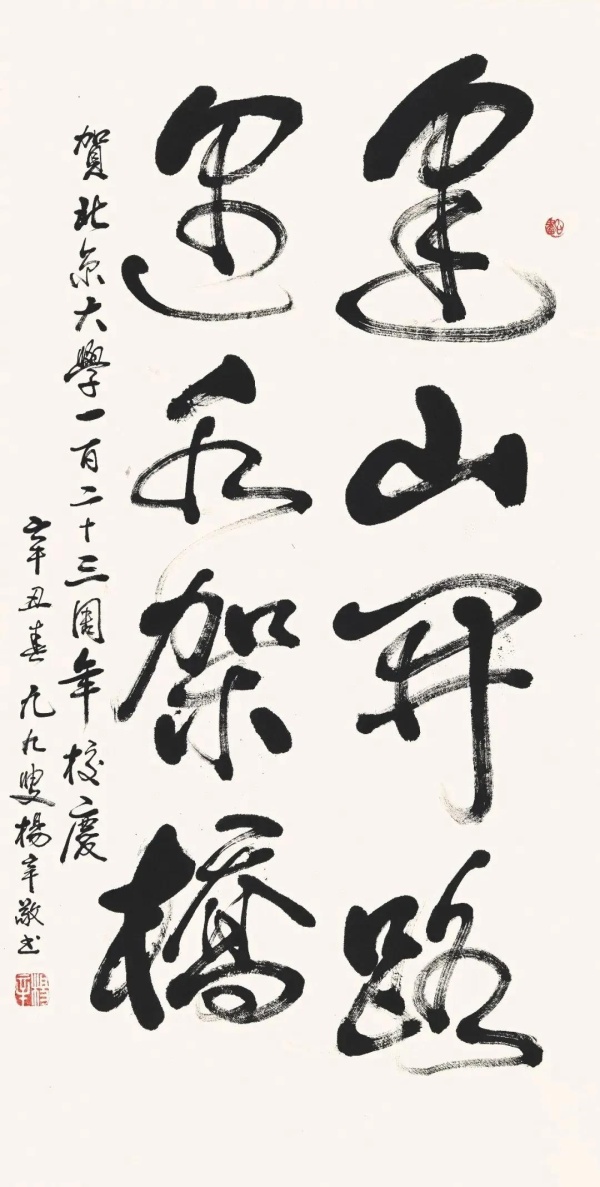 逢山開路
遇水架橋
賀北京大學一百二十三周年校慶
辛丑春九九叟楊辛敬书
楊辛